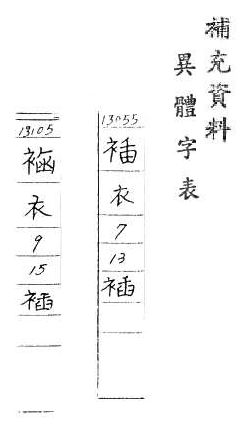 補充資料
異體字表
13055
衣
7
13
13105
衣
9
15